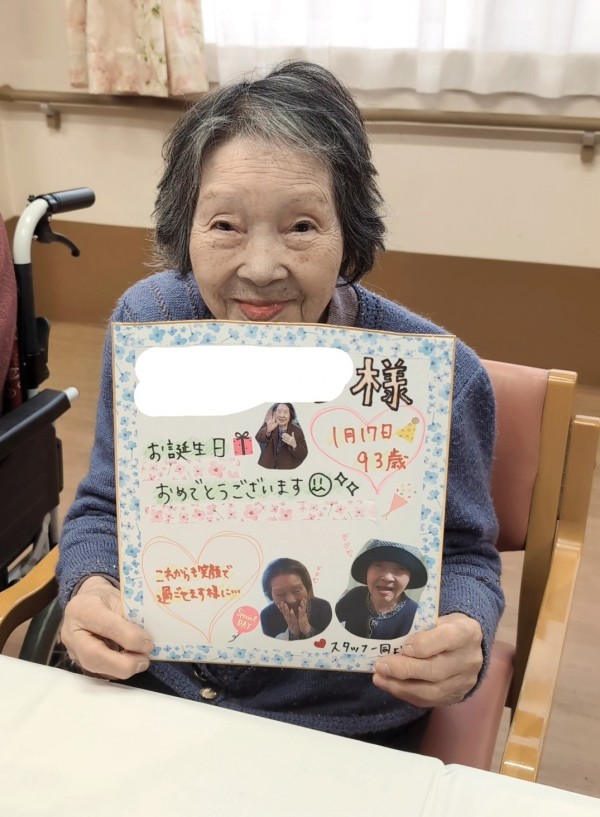 様
お誕生日
おめでとうございます
1月17日
93歳
これからも笑顔で
過ごせます様に…
Special
DAY
スタッフ一同より